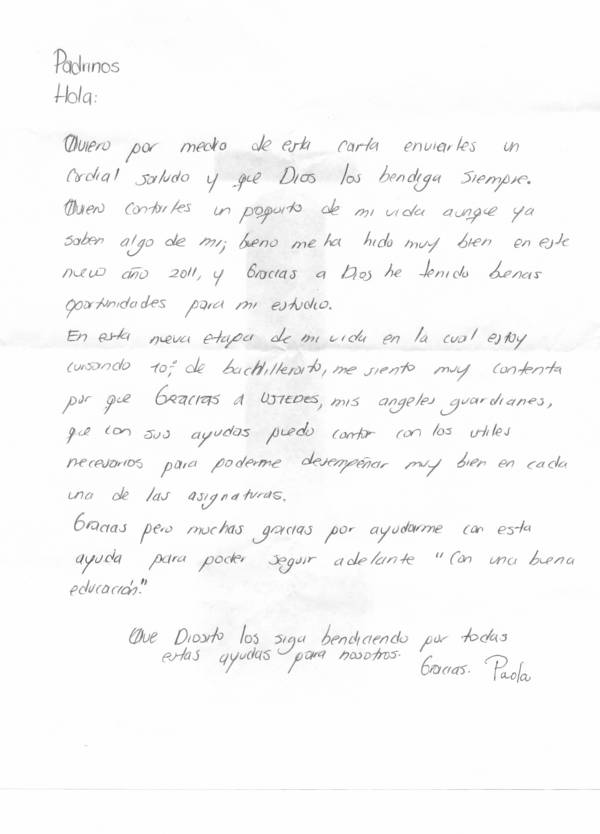 Padrinos
Hola:
Quiero por medio de esta carta enviarles un
cordial saludo y que Dios los bendiga siempre.
Quiero contarles un poquito de mi vida aunque ya
saben algo de mi; bueno me ha hido muy bien en este
nuevo año 2011, y Gracias a Dios he tenido buenas
oportunidades para mi estudio.
En esta nueva etapa de mi vida en la cual estoy
cursando 10; de bachillerato, me siento muy contenta
por que GRACIAS A USTEDES, mis angeles guardianes,
que con sus ayudas puedo contar con los utiles
necesarios para poderme desempeñar muy bien en cada
una de las asignaturas.
Gracias pero muchas gracias por ayudarme con esta
ayuda para poder seguir adelante "Con una buena
educación."
Que Diosito los siga bendiciendo por todas
estas ayudas para nosotros.
Gracias. Paola